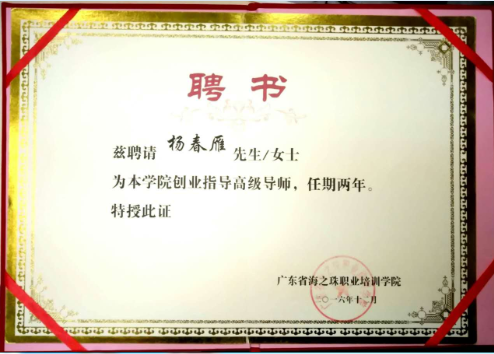 聘书
兹聘请 杨春雁 先生/女士
为本学院创业指导高级导师，任期两年。
特授此证
广东省海之珠职业培训学院
二〇一六年十二月